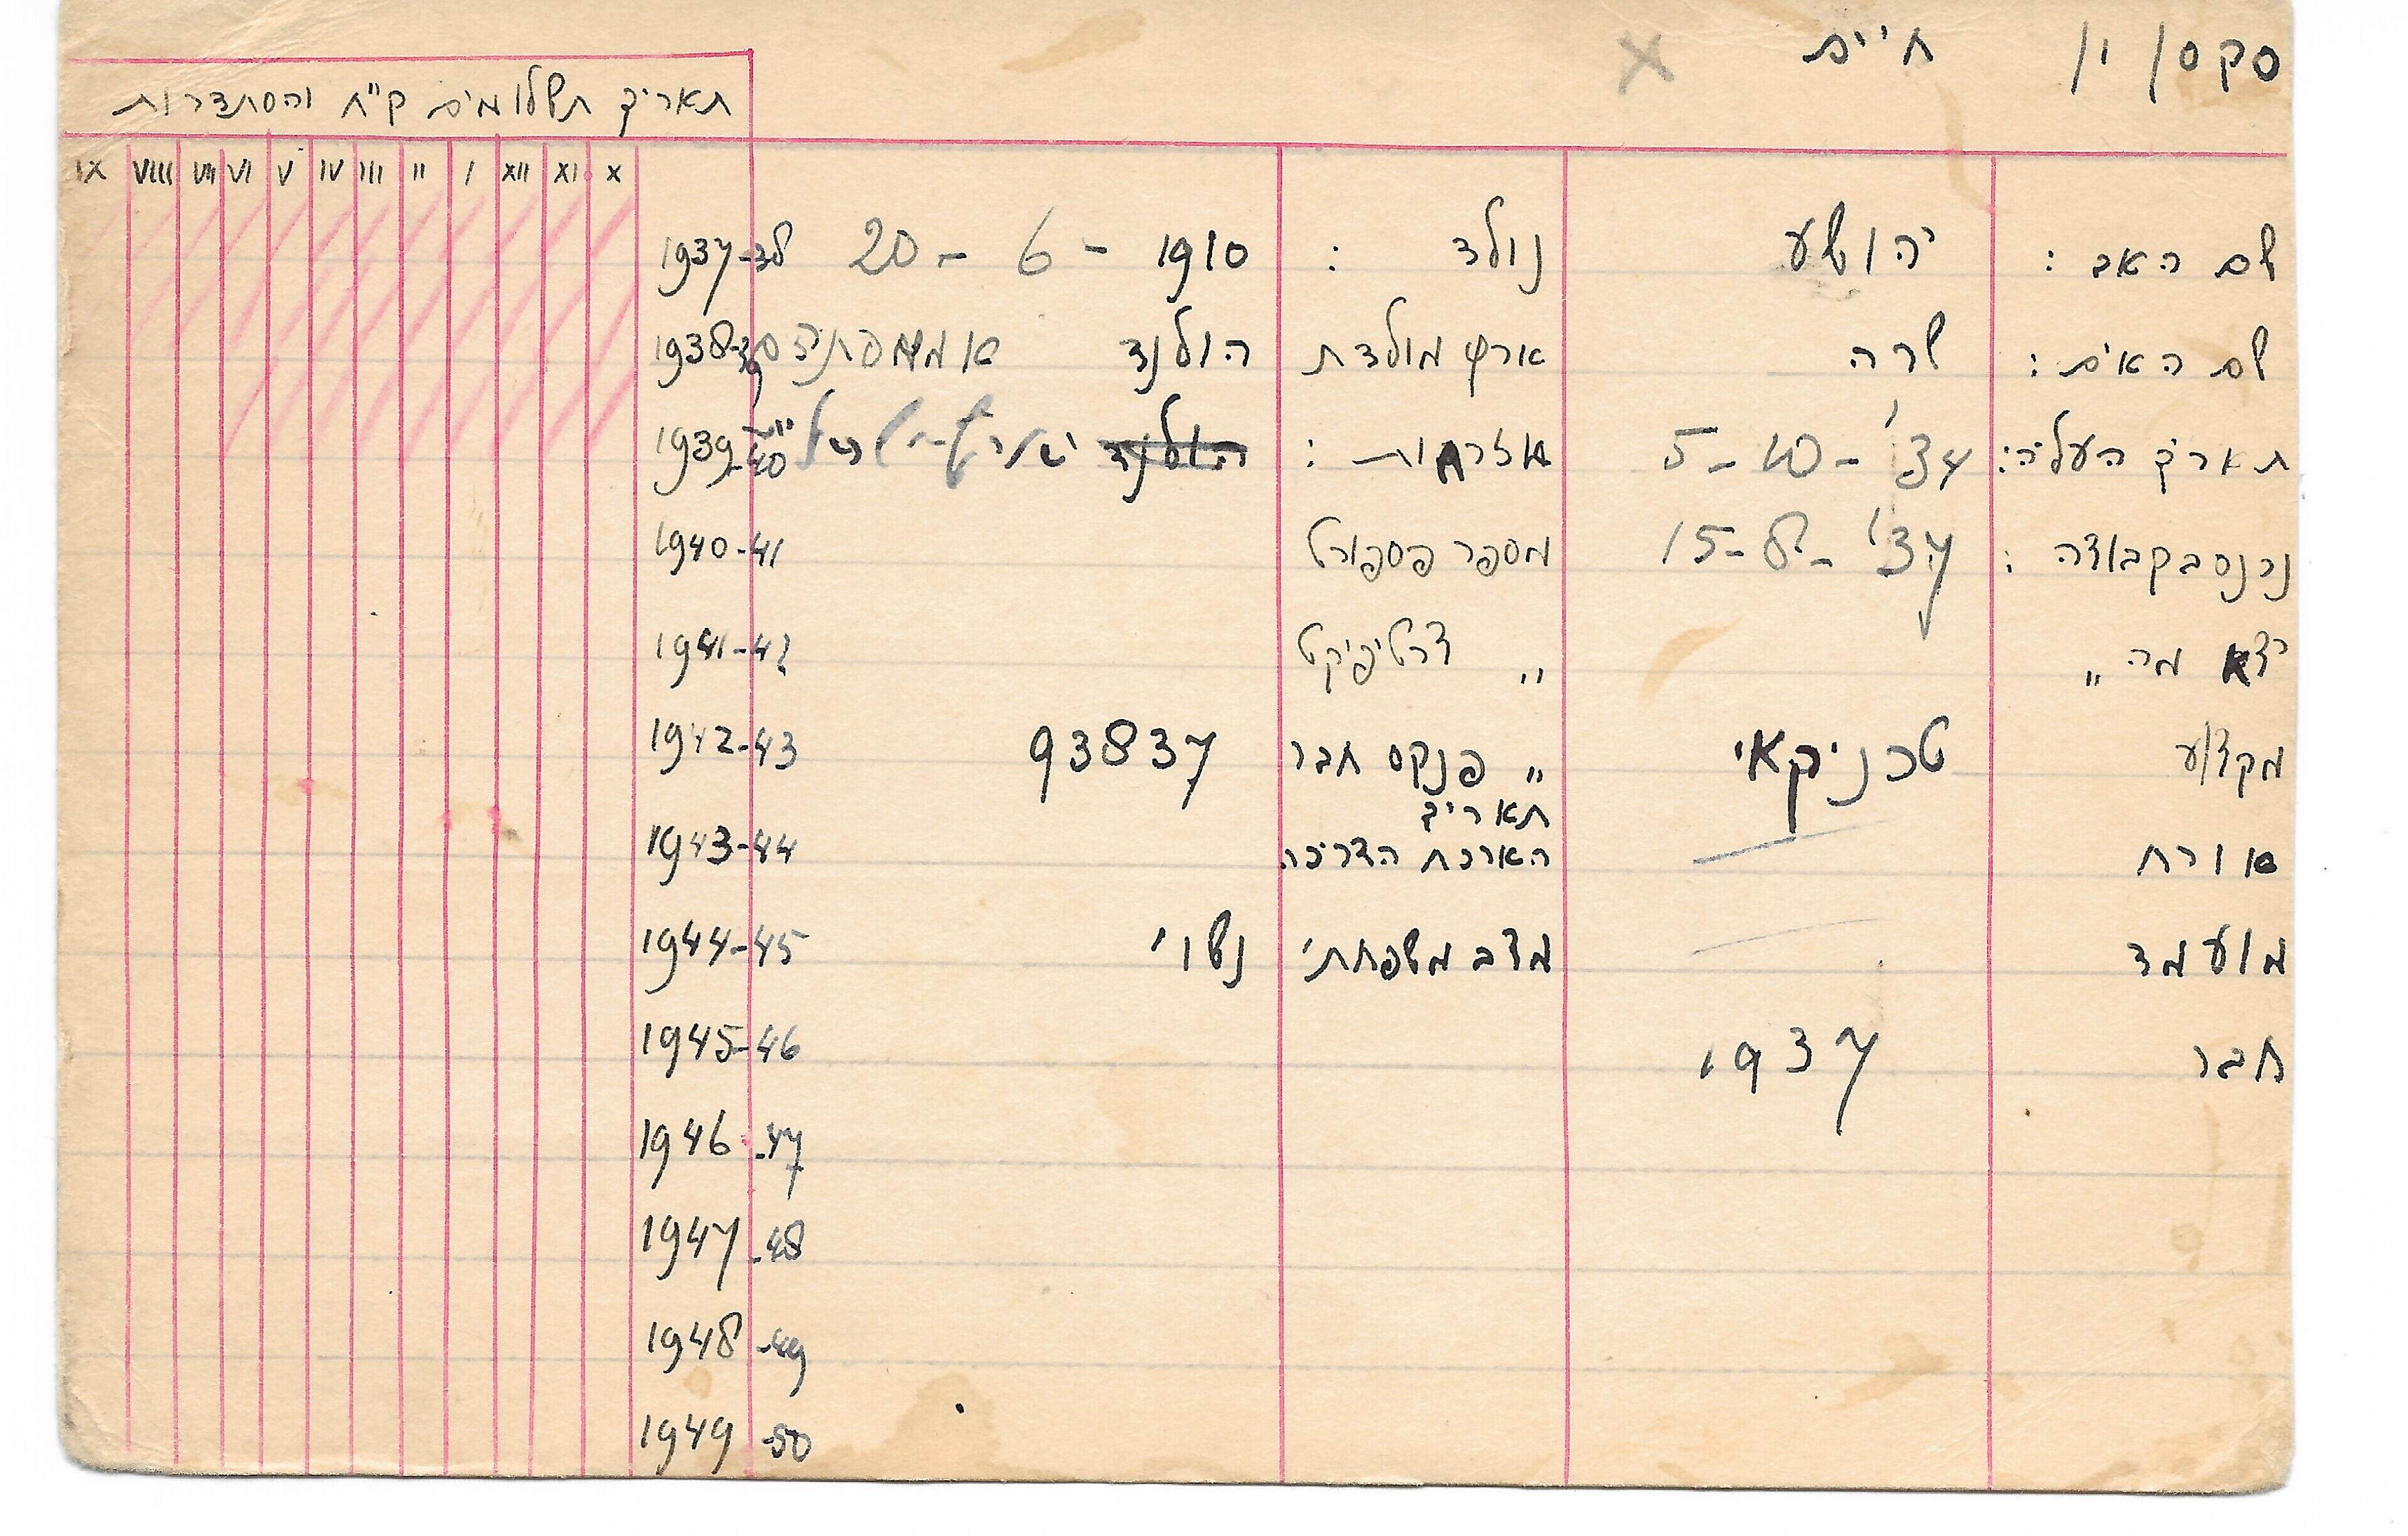 סקסון חיים X
תאריך תשלומים ק"ח והסתדרות
IX VIII VII VI V IV III II I XII XI X
שם האב : יהושע נולד : 20 - 6 - 1910 1937-38
שם האים : שרה ארץ מולדת הולנד אמסתרדם 1938-39
תאריך העליה: 5-10-'34 אזרחות : הולנד 1939-40
נכנס בקבוצה : 15-8-'37 מספר פספורט 1940-41
יצא מה " " צרטיפיקט 1941-42
מקצוע טכניקאי " פנקס חבר 93837 1942-43
אורח — תאריך
הארכת הדרכה 1943-44
מועמד — מצב משפחתי נשוי 1944-45
חבר 1937 1945-46
1946-47
1947-48
1948-49
1949-50